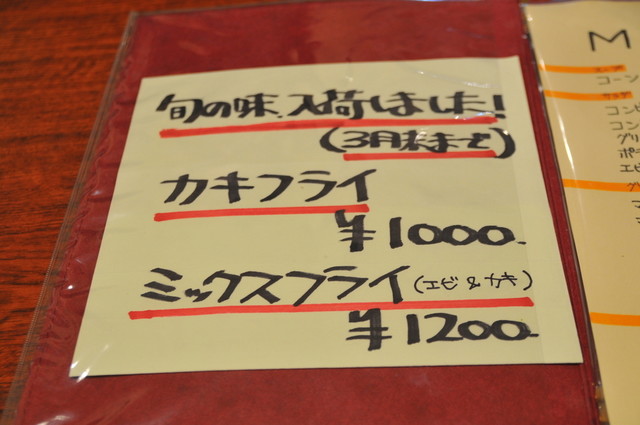 旬の味入荷しました!
(3月末まで)
カキフライ
¥1000.
ミックスフライ(エビ&カキ)
¥1200.
M
コーン
コン
コン
グリ
ポテ
エビ